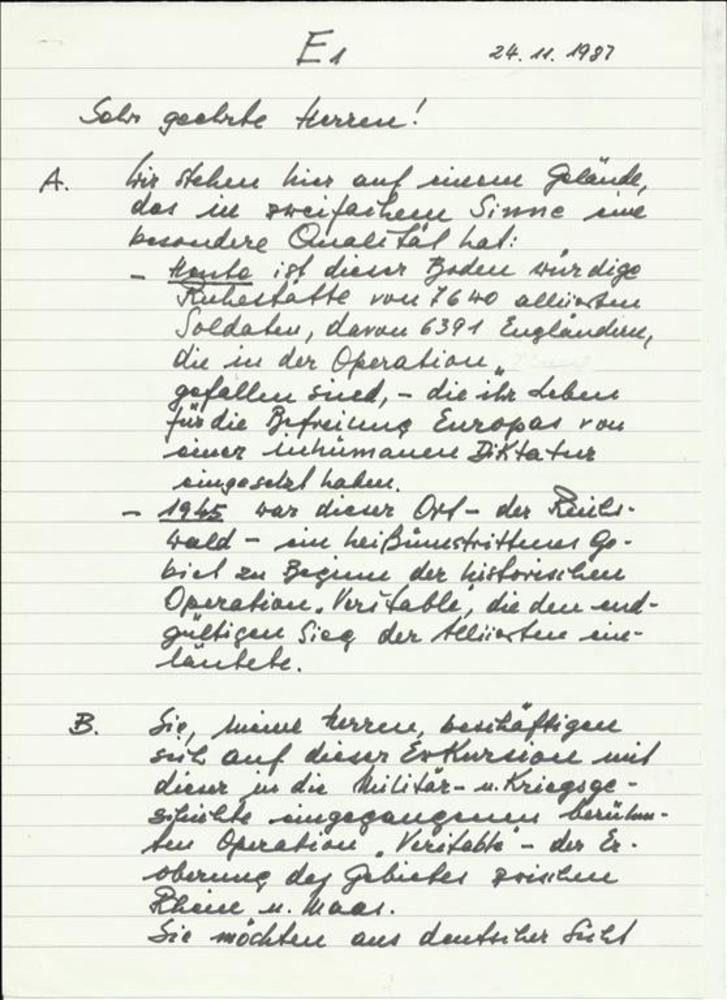 E1 24.11.1987
Sehr geehrte Herren!
A. Wir stehen hier auf einem Gelände,
das in zweifachem Sinne eine
besondere Qualität hat:
- Heute ist dieser Boden würdige
Ruhestätte von 7640 alliierten
Soldaten, davon 6391 Engländern,
die in der Operation „
gefallen sind, - die ihr Leben
für die Befreiung Europas von
einer inhumanen Diktatur
eingesetzt haben.
- 1945 war dieser Ort - der Reichs-
wald - ein heißumstrittenes Ge-
biet zu Beginn der historischen
Operation „Veritable", die den end-
gültigen Sieg der Alliierten ein-
läutete.
B. Sie, meine Herren, beschäftigen
sich auf dieser Exkursion mit
dieser in die Militär- u. Kriegsge-
schichte eingegangenen berühm-
ten Operation „Veritable" - der Er-
oberung des Gebietes zwischen
Rhein u. Maas.
Sie möchten aus deutscher Sicht